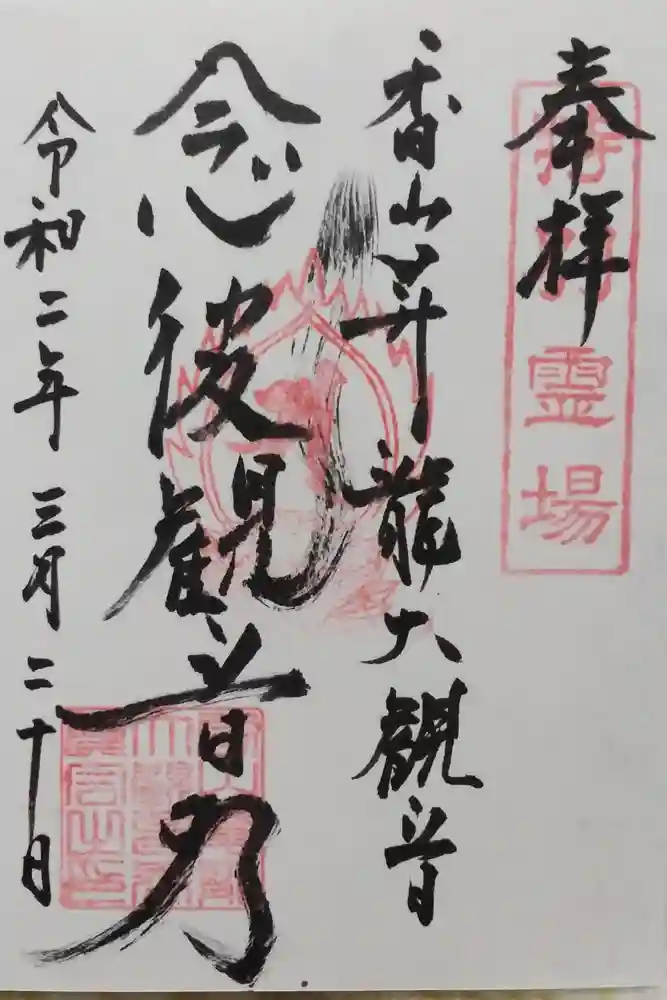 奉拝
霊場
香山昇龍大観音
念彼観音力
令和二年三月二十日